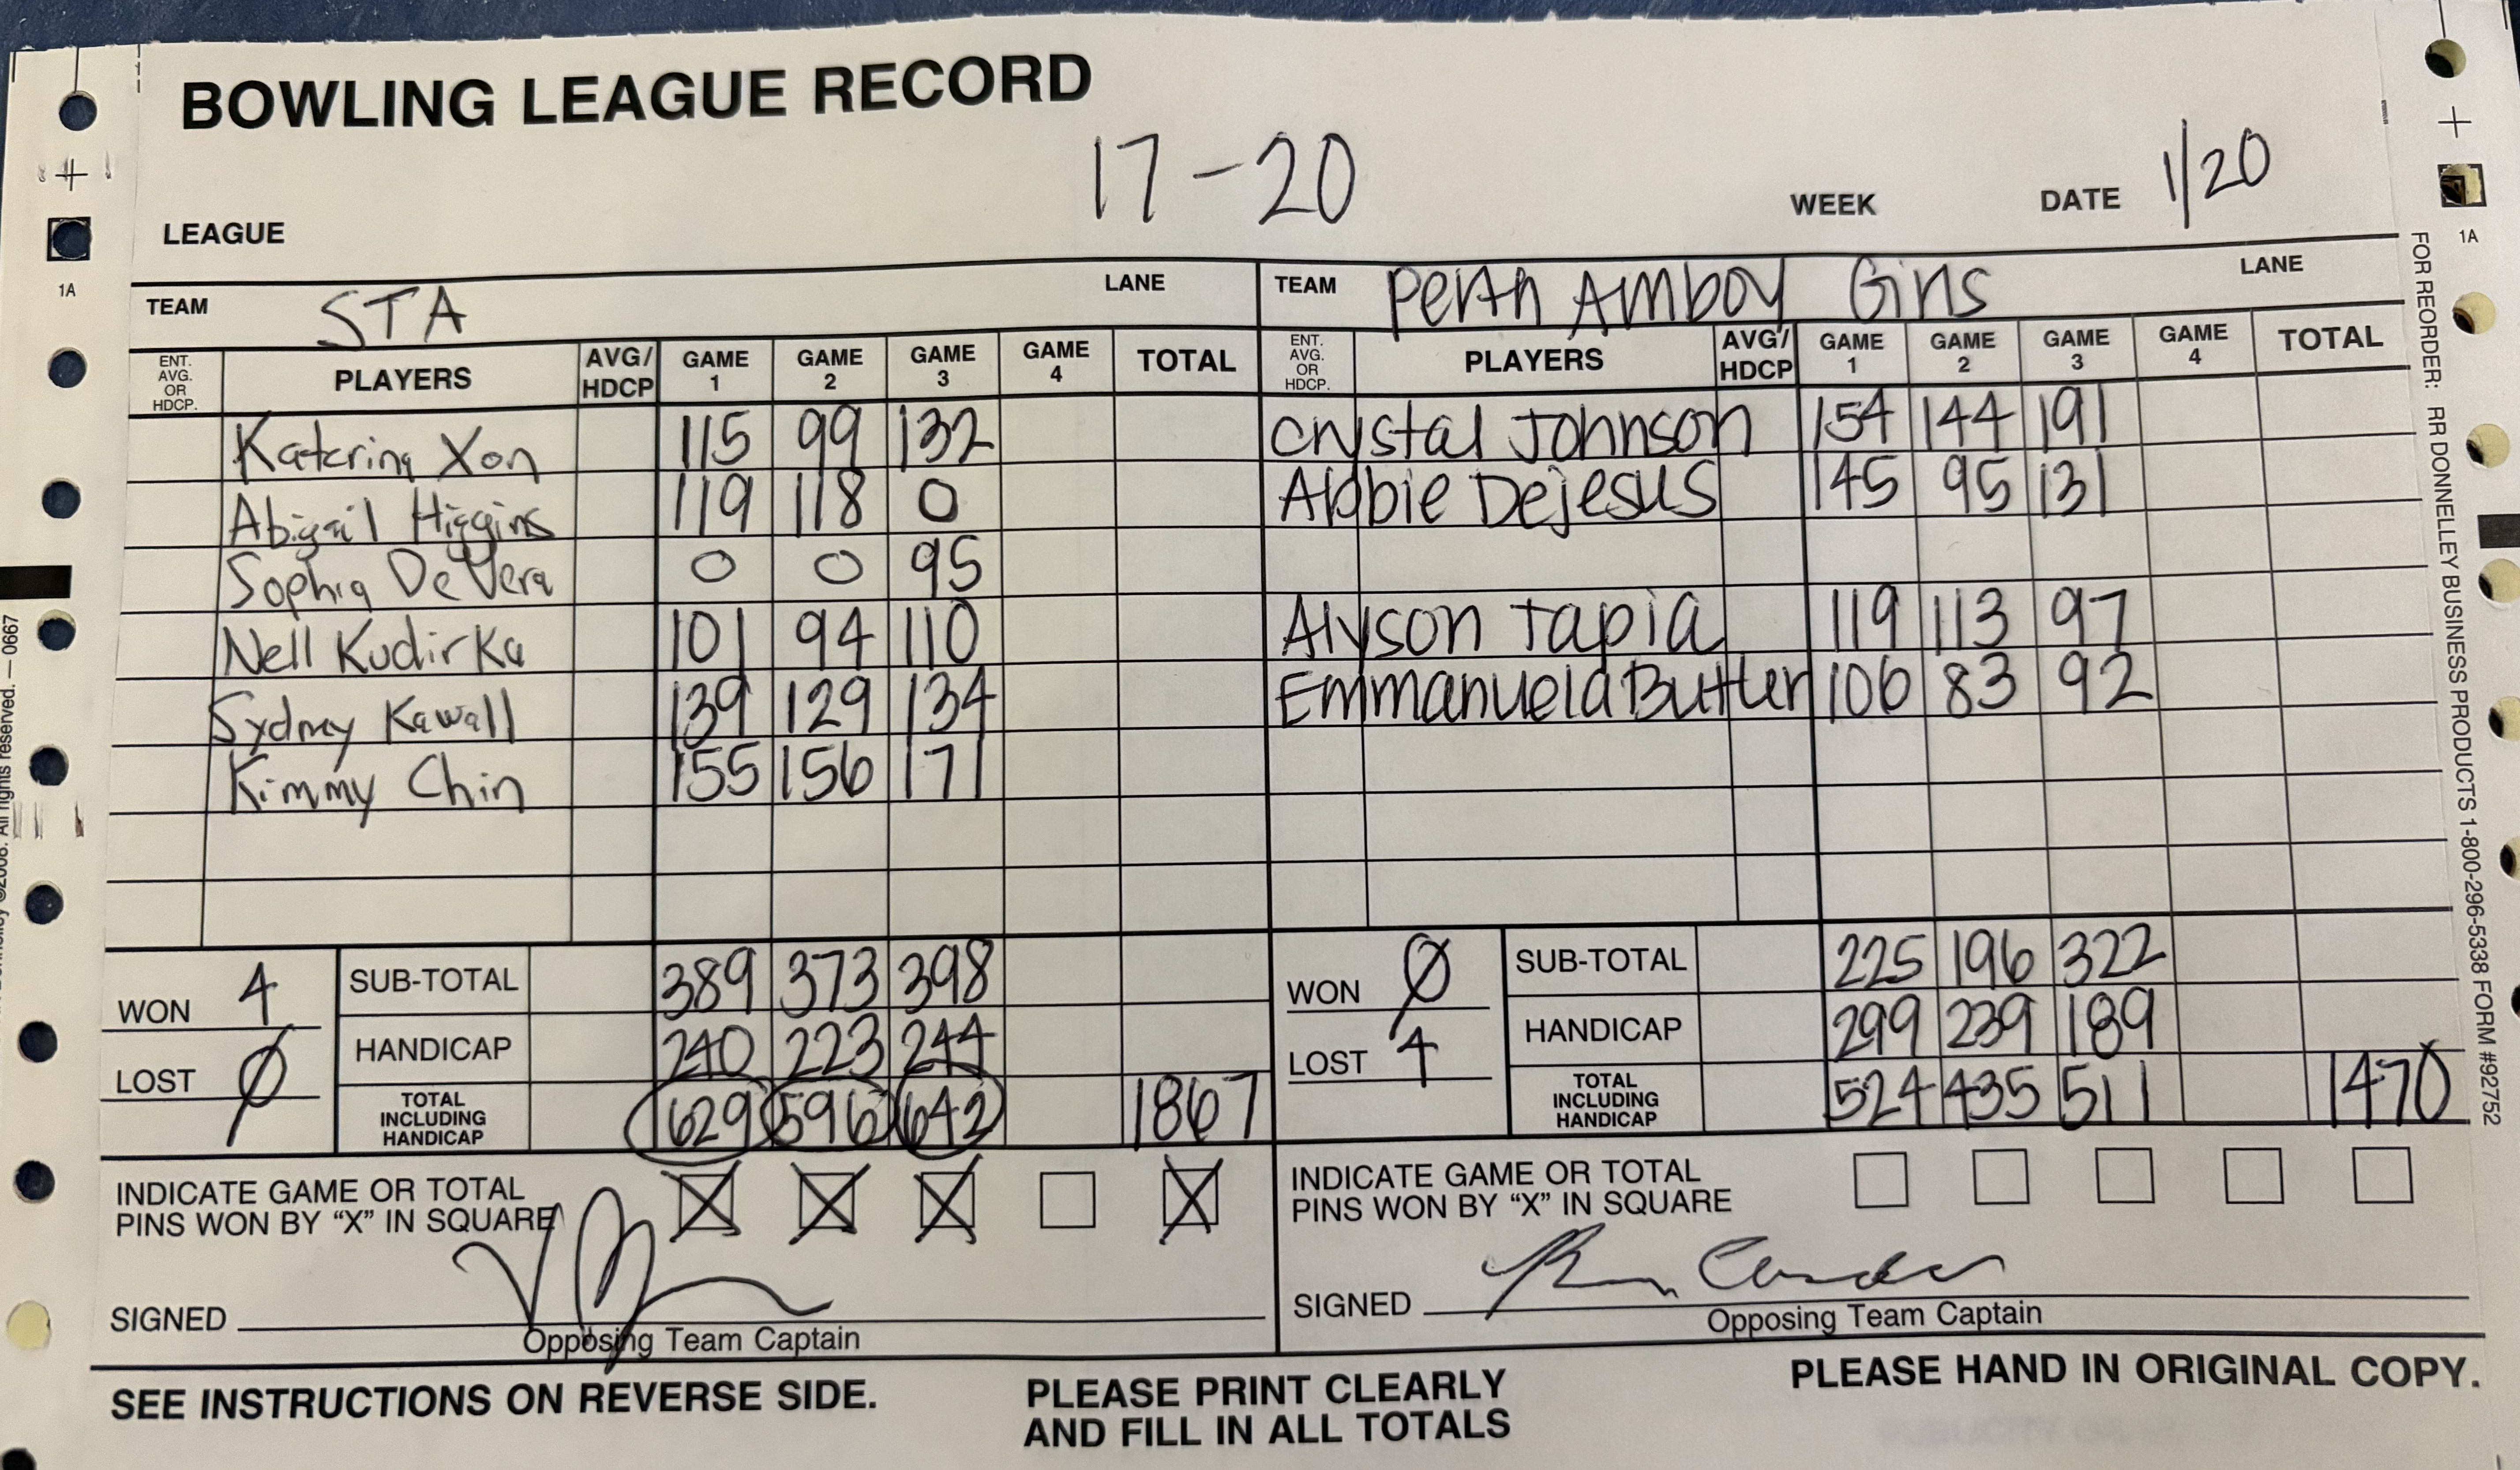 BOWLING LEAGUE RECORD
17-20
LEAGUE WEEK DATE 1/20
TEAM STA LANE
ENT. AVG. OR HDCP. PLAYERS AVG/HDCP GAME 1 GAME 2 GAME 3 GAME 4 TOTAL
Katerina Xon 115 99 132
Abigail Higgins 119 118 0
Sophia De Vera 0 0 95
Nell Kudirka 101 94 110
Sydney Kawall 139 129 134
Kimmy Chin 155 156 171
WON 4
LOST 0
SUB-TOTAL 389 373 398
HANDICAP 240 223 244
TOTAL INCLUDING HANDICAP 629 596 642 1867
INDICATE GAME OR TOTAL
PINS WON BY “X” IN SQUARE X X X X
SIGNED
Opposing Team Captain
TEAM Perth Amboy Girls LANE
ENT. AVG. OR HDCP. PLAYERS AVG/HDCP GAME 1 GAME 2 GAME 3 GAME 4 TOTAL
Crystal Johnson 154 144 191
Abbie Dejesus 145 95 131
Alyson Tapia 119 113 97
Emmanuela Butler 106 83 92
WON 0
LOST 4
SUB-TOTAL 225 196 322
HANDICAP 299 239 189
TOTAL INCLUDING HANDICAP 524 435 511 1470
INDICATE GAME OR TOTAL
PINS WON BY “X” IN SQUARE
SIGNED
Opposing Team Captain
SEE INSTRUCTIONS ON REVERSE SIDE.
PLEASE PRINT CLEARLY
AND FILL IN ALL TOTALS
PLEASE HAND IN ORIGINAL COPY.
1A
1A
All rights reserved. — 0667
FOR REORDER: RR DONNELLEY BUSINESS PRODUCTS 1-800-296-5338 FORM #92752